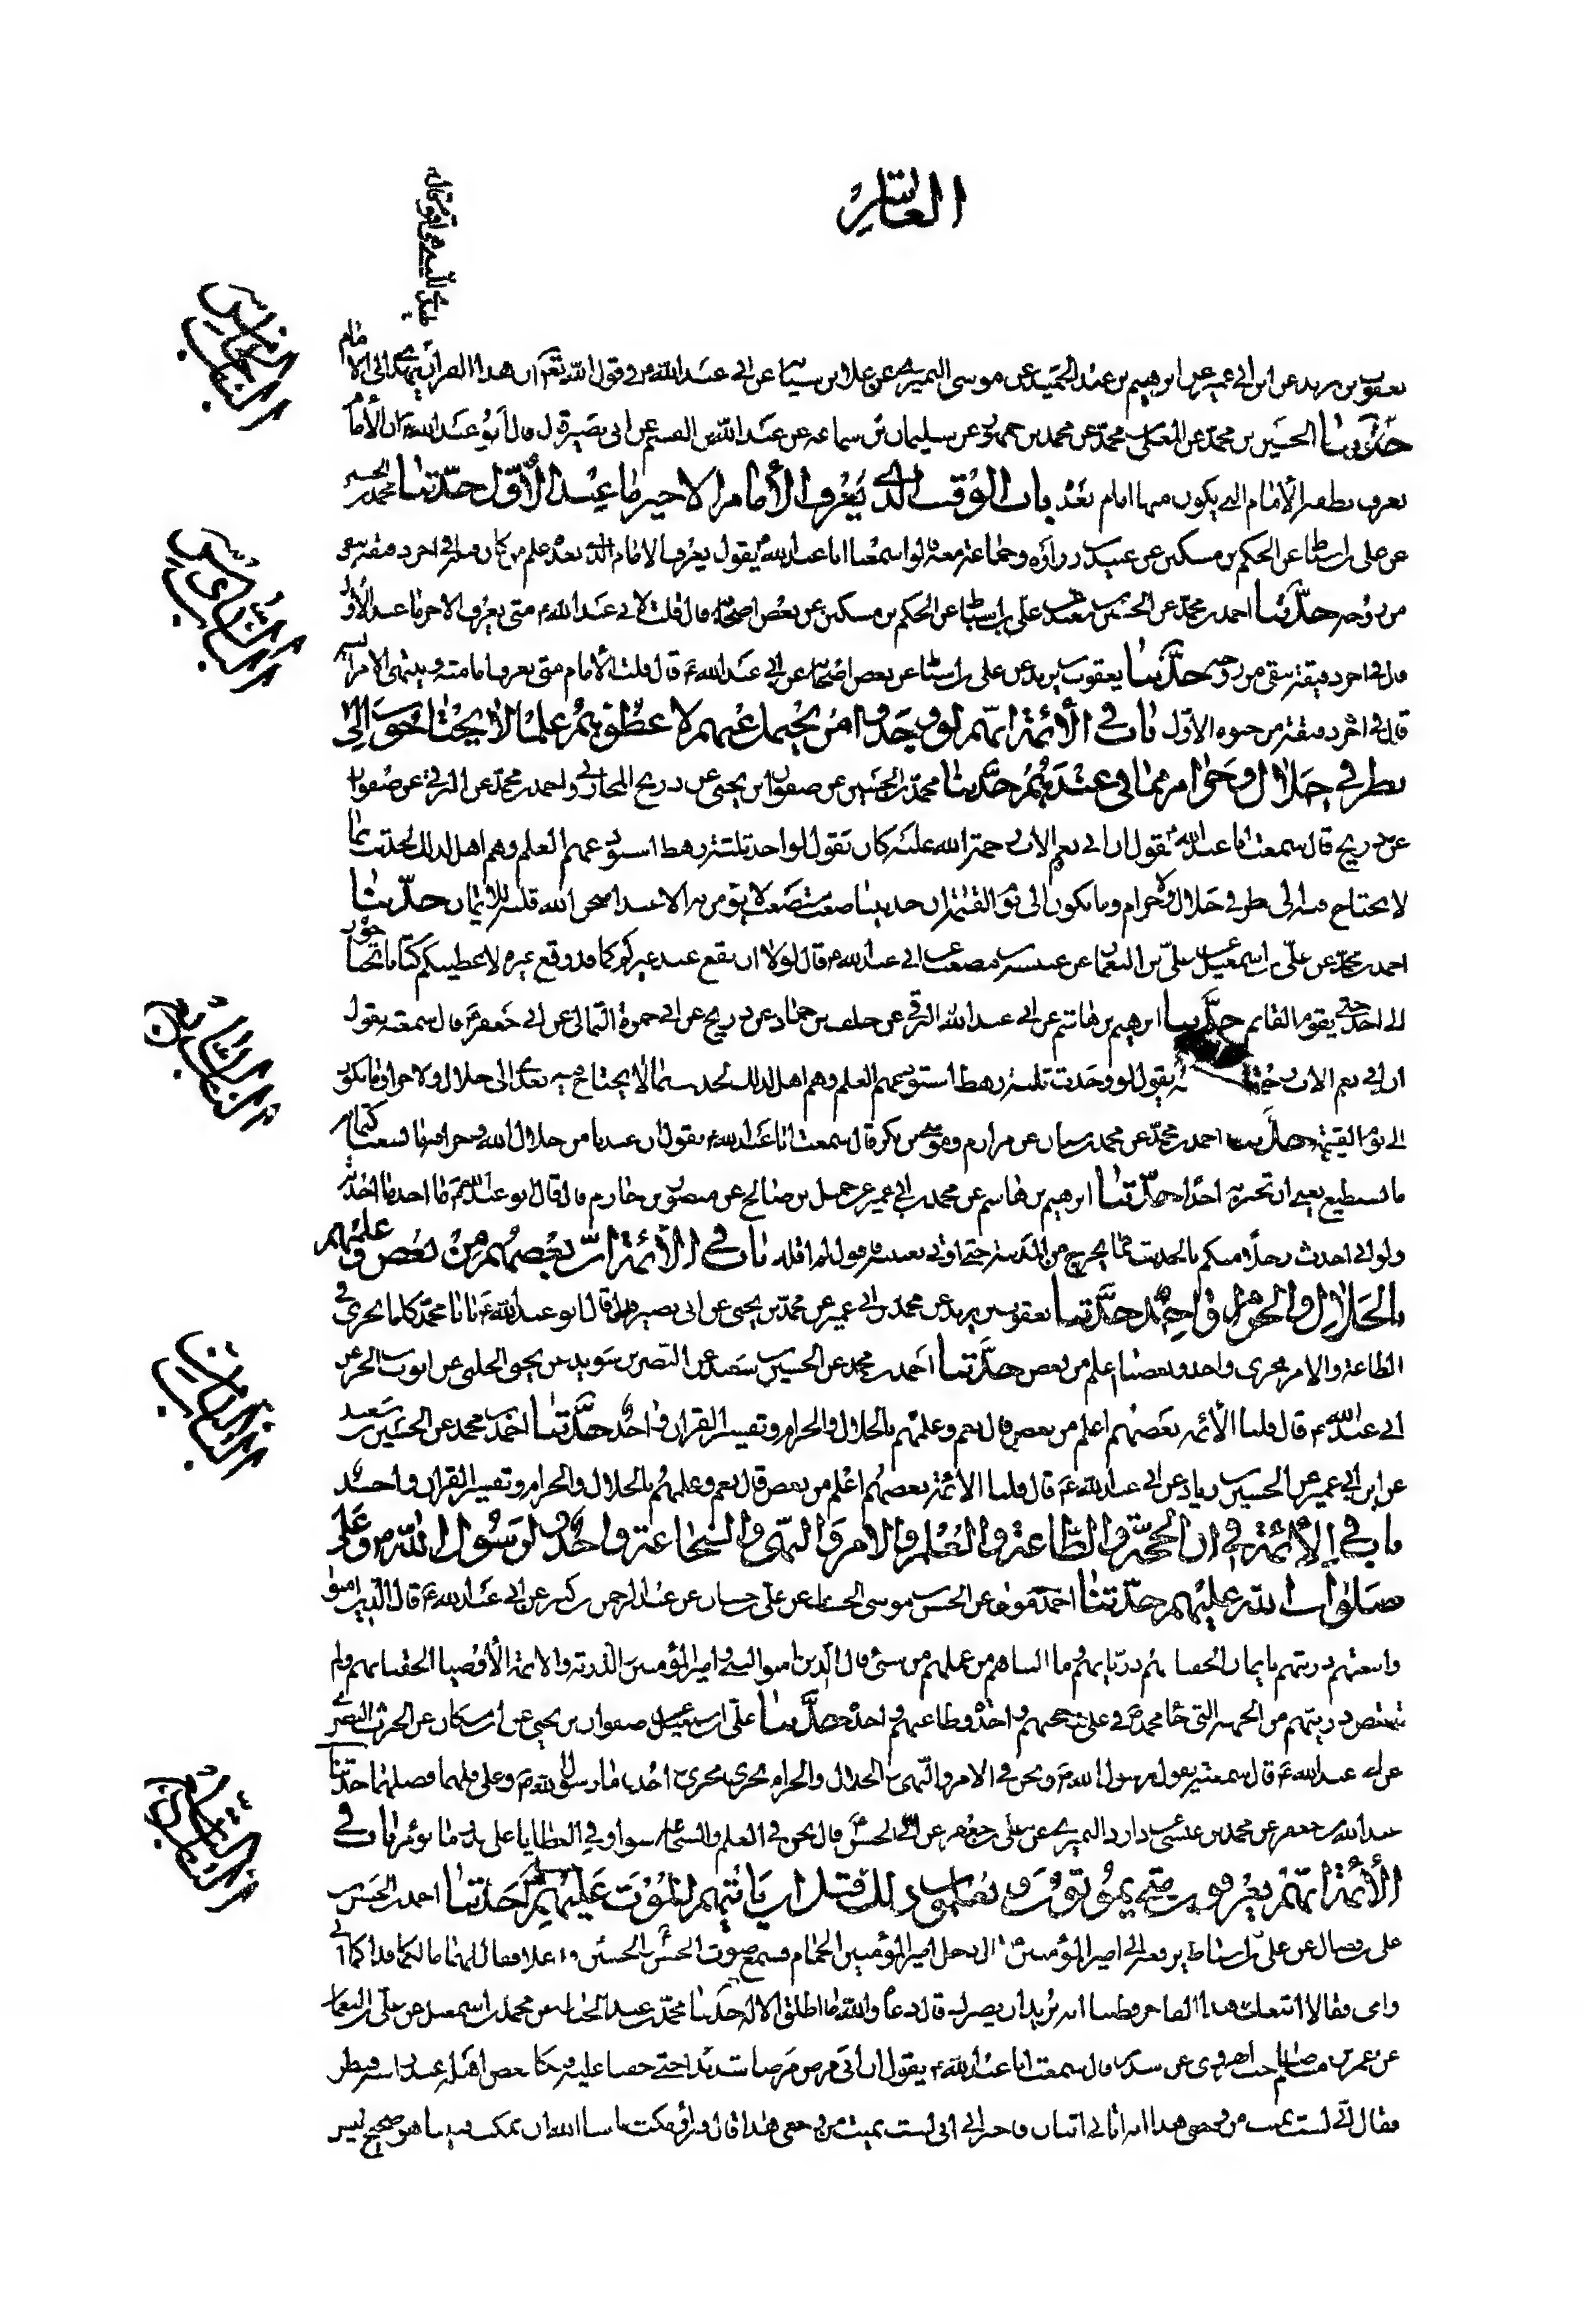 العاشر
يعقوب بن يزيد عن ابن ابي عمير عن ابرهيم بن عبد الحميد عن موسى النميري عن علا بن سيابه عن ابي عبد الله في قول الله تعالى ان هذا القران يهدي الى الامام
حدثنا الحسين بن محمد عن المعلى محمد عن محمد بن جمهور عن سليمان بن سماعه عن عبد الله بن القسم عن ابي بصير قال قال ابو عبد الله ان الأمام
يعرف نطفه الأمام التي يكون منها امام بعد باب الوقت الذي يعرف الأمام الاخير ما عند الأول حدثنا محمد بن الحسين
عن علي بن اسباط عن الحكم بن مسكين عن عبيد بن زراره وجماعة معه قالوا سمعنا ابا عبد الله يقول يعرف الامام الذي بعده علم من كان قبله في اخر دقيقه تبقى
من روحه حدثنا احمد بن محمد عن الحسين بن سعيد عن علي بن اسباط عن الحكم بن مسكين عن بعض اصحابه قال قلت لابي عبد الله متى يعرف الاخير ما عند الأول
قال في اخر دقيقة تبقى من روحه حدثنا يعقوب بن يزيد عن علي بن اسباط عن بعض اصحابه عن ابي عبد الله قال قلت الأمام متى يعرف امامته وينتهي الامر اليه
قال في اخر دقيقة من حيوه الاول باب في الأئمة انهم لو وجدوا من يحتمل عنهم لاعطوهم علما لا يحتاجون الى
نظر في حلال وحرام مما في عندهم حدثنا محمد بن الحسين عن صفوان بن يحيى عن ذريح المحاربي واحمد بن محمد عن البرقي عن صفوان
عن ذريح قال سمعت ابا عبد الله يقول ان ابي نعم الاب رحمة الله عليه كان يقول لو اجد ثلثة رهط استودعهم العلم وهم اهل لذلك لحدثت بما
لا يحتاج فيه الى نظر في حلال ولا حرام وما يكون الى يوم القيمة ان حديثنا صعب مستصعب لا يؤمن به الا عبد امتحن الله قلبه للايمان حدثنا
احمد بن محمد عن علي بن اسمعيل علي بن النعمان عن عنبسه بن مصعب عن ابي عبد الله قال لولا ان يقع عند غيركم كما قد وقع غيره لاعطيتكم كتابا لا تحتاجون
الى احد حتى يقوم القايم حدثنا ابرهيم بن هاشم عن ابي عبد الله البرقي عن خلف بن حماد عن ذريح عن ابي حمزة الثمالي عن ابي جعفر قال سمعته يقول
ان ابي نعم الاب يقول لو وجدت ثلثة رهط استودعهم العلم وهم اهل لذلك لحدثت بما لا يحتاج فيه بعدي الى حلال ولا حرام وما يكون
الى يوم القيمة حدثنا احمد بن محمد عن محمد بن سنان عن مرازم وموسى بن بكر قال سمعت ابا عبد الله يقول ان عندنا من حلال الله وحرامه ما يسعنا كتمانه
ما نستطيع يعني ان نخبر به احدا حدثنا ابرهيم بن هاشم عن محمد بن ابي عمير عن جميل بن صالح عن منصور بن حازم قال قال ابو عبد الله ما اجد من احدثه
ولو اني احدث رجلا منكم بالحديث فما يخرج من المدينة حتى اوتى بعينه فاقول لم اقله باب في الأئمة ان بعضهم من بعض وعلمهم
بالحلال والحرام واحد حدثنا يعقوب بن يزيد عن محمد بن ابي عمير عن محمد بن يحيى عن ابي بصير قال قال ابو عبد الله يا با محمد كلنا نجري في
الطاعة والامر مجرى واحد وبعضنا اعلم من بعض حدثنا احمد بن محمد عن الحسين بن سعيد عن النضر بن سويد عن يحيى الحلبي عن ايوب بن الحر عن
ابي عبد الله قال قلنا الأئمه بعضهم اعلم من بعض قال نعم وعلمهم بالحلال والحرام وتفسير القران واحد حدثنا احمد بن محمد عن الحسين بن سعيد
عن ابن ابي عمير عن الحسين بن زياد عن ابي عبد الله قال قلنا الأئمة بعضهم اعلم من بعض قال نعم وعلمهم بالحلال والحرام وتفسير القران واحد
باب في الأئمة في ان الحجة والطاعة والعلم والامر والنهي والشجاعة واحد لرسول الله وعلى
صلوات الله عليهم حدثنا احمد بن موسى عن الحسن بن موسى الخشاب عن علي بن حسان عن عبد الرحمن بن كثير عن ابي عبد الله قال الذين امنوا
واتبعتهم ذريتهم بايمان الحقنا بهم ذرياتهم وما التناهم من عملهم من شئ قال الذين امنوا النبي وامير المؤمنين الذرية والائمة الأوصيا الحقنا بهم ولم
تنقص ذريتهم من الجهة التي جا محمد في علي وحجتهم واحدة وطاعتهم واحده حدثنا علي بن اسمعيل عن صفوان بن يحيى عن ابن مسكان عن الحرث النضري
عن ابي عبد الله قال سمعته يقول رسول الله ونحن في الامر والنهي والحلال والحرام نجري مجرى احد فاما رسول الله وعلي فلهما فضلهما حدثنا
عبد الله بن جعفر عن محمد بن عيسى عن داود النميري عن علي بن جعفر عن ابي الحسن قال نحن في العلم والشجاعه سوا وفي العطايا على قدر ما نؤمر باب في
الأئمة انهم يعرفون متى يموتون ويعلمون ذلك قبل ان ياتيهم الموت عليهم حدثنا احمد بن الحسن بن
علي بن فضال عن علي بن اسباط يرفعه الى امير المؤمنين قال دخل امير المؤمنين الحمام فسمع صوت الحسن والحسين قد علا فقال لهما ما لكما فداكما ابي
وامي فقالا اتبعك هذا الفاجر فظننا انه يريد ان يضرك قال دعاه والله ما اطلق الا له حدثنا محمد بن عبد الجبار عن محمد بن اسمعيل عن علي بن النعمان
عن عمر بن مسلم صاحب الهروي عن سدير قال سمعت ابا عبد الله يقول ان ابي مرض مرضا شديدا حتى خفنا عليه فبكا بعض اهله عند راسه فنظر
فقال اني لست بميت من وجعي هذا انه اتاني اثنان فاخبراني اني لست بميت من وجعي هذا قال فبرا ومكث ما شا الله ان يمكث فبينا هو صحيح ليس